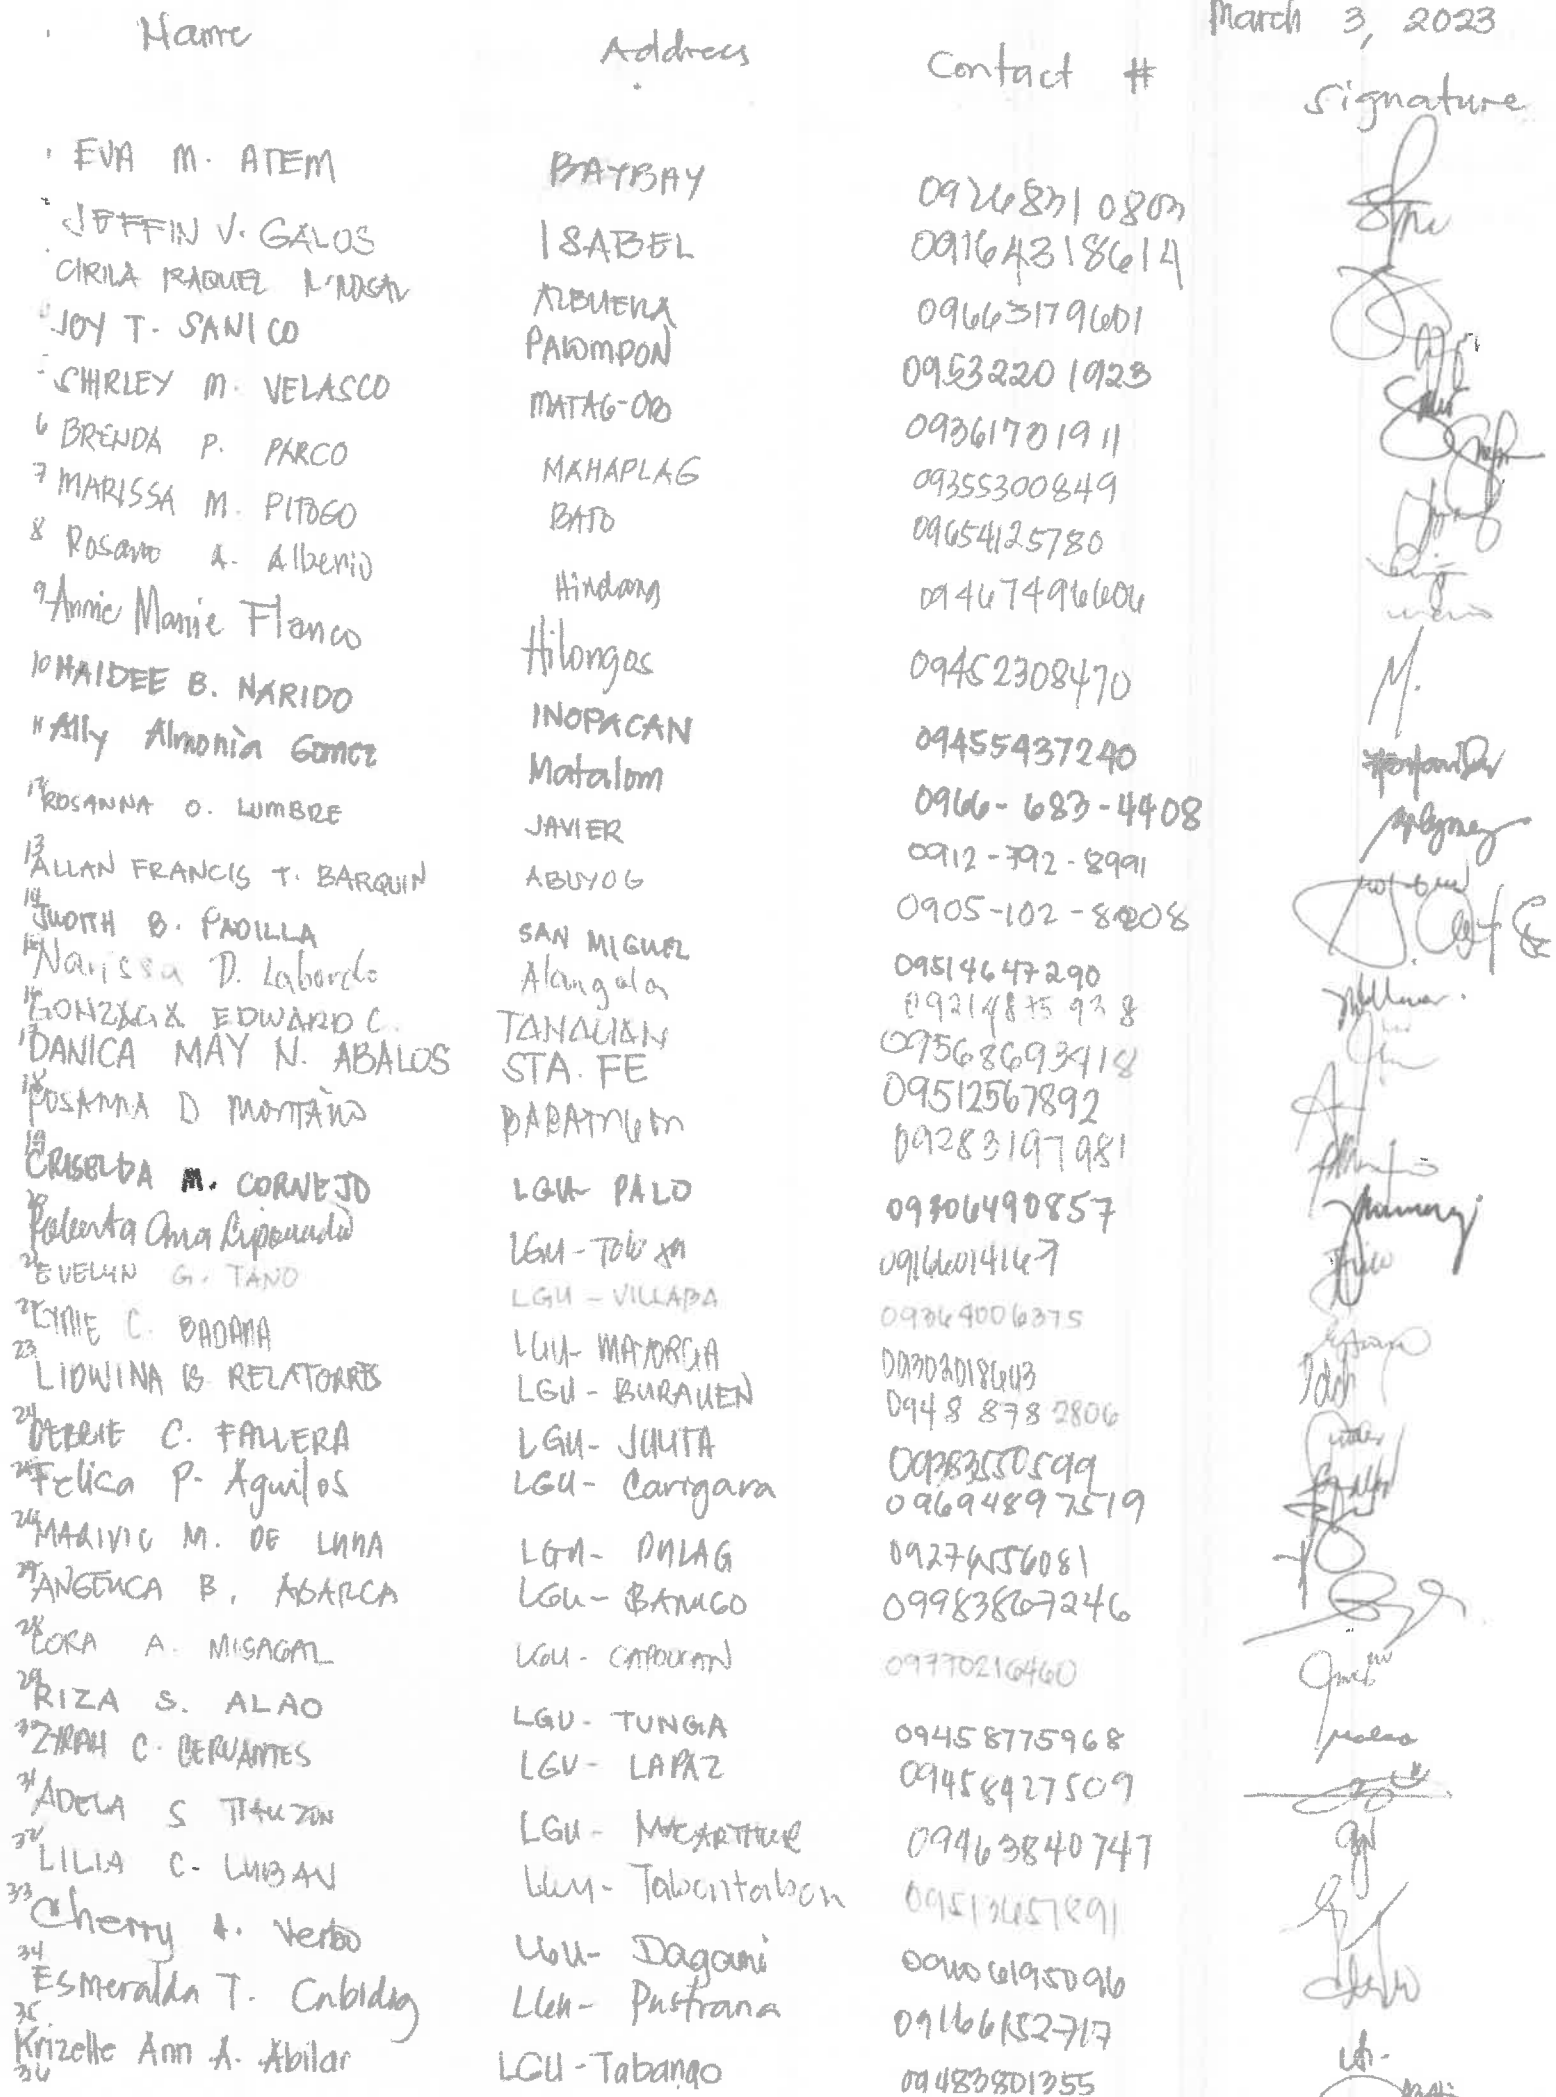 March 3, 2023
Name Address Contact # Signature
1 EVA M. ATEM BAYBAY 09268310803
2 JEFFIN V. GALOS ISABEL 09164318614
CIRILA RAQUEL ALBUERA 09663179601
JOY T. SANICO PALOMPON 09532201923
SHIRLEY M. VELASCO MATAG-OB 09361701911
6 BRENDA P. PARCO MAHAPLAG 09355300849
7 MARISSA M. PITOGO BATO 09654125780
8 Rosario A. Albenio Hindang 09467496606
9 Annie Marie Flanco Hilongos 09452308470
10 HAIDEE B. NARIDO INOPACAN 09455437240
11 Ally Almonia Gomez Matalom 0966-683-4408
12 ROSANNA O. LUMBRE JAVIER 0912-792-8991
13 ALLAN FRANCIS T. BARQUIN ABUYOG 0905-102-8208
14 JUDITH B. PADILLA SAN MIGUEL 09514647290
15 Narissa D. Labordo Alangala
16 GONZAGA EDWARD C. TANAUAN 09568693418
17 DANICA MAY N. ABALOS STA. FE 09512567892
18 ROSANNA D MONTAÑO BABATNGON 09283197981
19 CRISELDA M. CORNEJO LGU- PALO 09306490857
20 Roberta Ana LGU-Tolosa 09166014167
21 EVELYN G. TANO LGU - VILLABA 09364006375
22 LYNIE C. BADANA LGU- MAYORGA
23 LIDWINA B RELATORRES LGU - BURAUEN 0948 878 2806
24 DEBBIE C. FALLERA LGU- JULITA 09383550599
25 Felica P- Aguilos LGU- Carigara 09694897519
26 MARIVIC M. DE LUNA LGU- DULAG
27 ANGELICA B. ABARCA LGU- BARUGO 09983867246
28 LORA A. MISAGAL LGU - CAPOOCAN 09770216460
29 RIZA S. ALAO LGU- TUNGA 09458775968
30 ZYRAH C. CERVANTES LGU- LAPAZ 09458427509
31 ADELA S TIAUZON LGU- MACARTHUR 09463840747
32 LILIA C- LUBAN LGU- Tabontabon 09513657891
33 Cherry A. Verbo LGU- Dagami
34 Esmeralda T. Cabidog LGU- Pastrana 09166152717
35 Krizelle Ann A. Abilar LGU-Tabango 09483801355
36